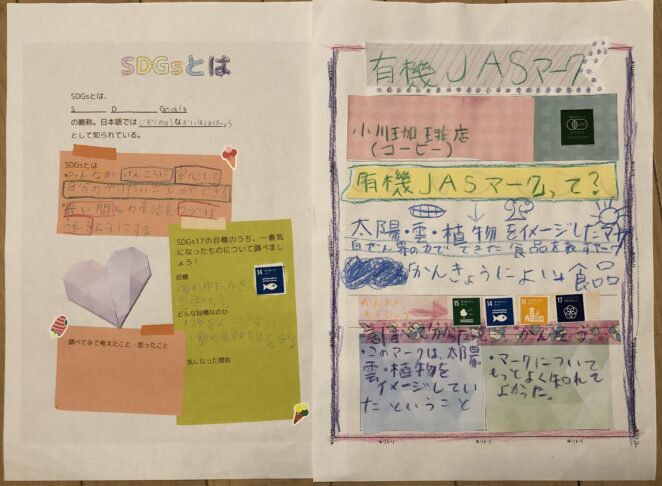 SDGsとは
SDGsとは、
S D Goals
の略称。日本語では な
として知られている。
SDGsとは
みんなが けんこうに 安心して
長い間 の生活を つづけ
れるようにする
SDGs17の目標のうち、一番気
になったものについて調べまし
ょう！
目標
14
海のゆたかさ
を守ろう
どんな目標なのか
気になった理由
調べてみて考えたこと・思ったこと
有機JASマーク
小川珈琲店
(コーヒー)
有機JASマークって？
太陽・雲・植物をイメージしたマーク
自ぜん界の力でできた食品を表すマーク
かんきょうによい食品
15 14 11 17
分かったこと かんそう
・このマークは、太陽
雲・植物を
イメージしてい
たということ
・マークについて
もっとよく知れて
よかった。
キリトリ キリトリ キリトリ